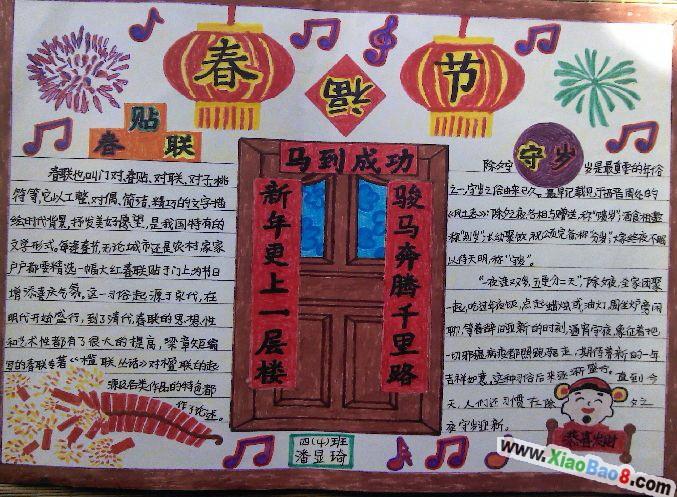 春
节
福
贴
春 联
守岁
马到成功
骏马奔腾千里路
新年更上一层楼
春联也叫门对、春贴、对联、对子、桃
符等,它以工整、对偶、简洁、精巧的文字描
绘时代背景,抒发美好愿望,是我国特有的
文学形式。每逢春节,无论城市还是农村,家家
户户都要精选一幅大红春联贴于门上,为节日
增添喜庆气氛。这一习俗起源于宋代,在
明代开始盛行,到了清代,春联的思想性
和艺术性都有了很大的提高,梁章矩编
写的春联专著《楹联丛话》对楹联的起
源及各类作品的特色都
作了论述。
除夕守岁是最重要的年俗
之一,守岁之俗由来已久。最早记载见于西晋周处的
《风土志》:除夕之夜,各相与赠送,称"馈岁";酒食相邀,
称"别岁";长幼聚饮,祝颂完备,称"分岁";大家终夜不眠,
以待天明,称"守岁"。
"一夜连双岁,五更分二天",除夕夜,全家团聚
一起,吃过年夜饭,点起蜡烛或油灯,围坐炉旁闲
聊,等着辞旧迎新的时刻,通宵守夜,象征着把
一切邪瘟病疫都照跑驱走,期待着新的一年
吉祥如意。这种习俗后来逐渐盛行,直到今
天,人们还习惯在除夕之
夜守岁迎新。
恭喜发财
四(4)班
潘显琦
www.XiaoBao8.com